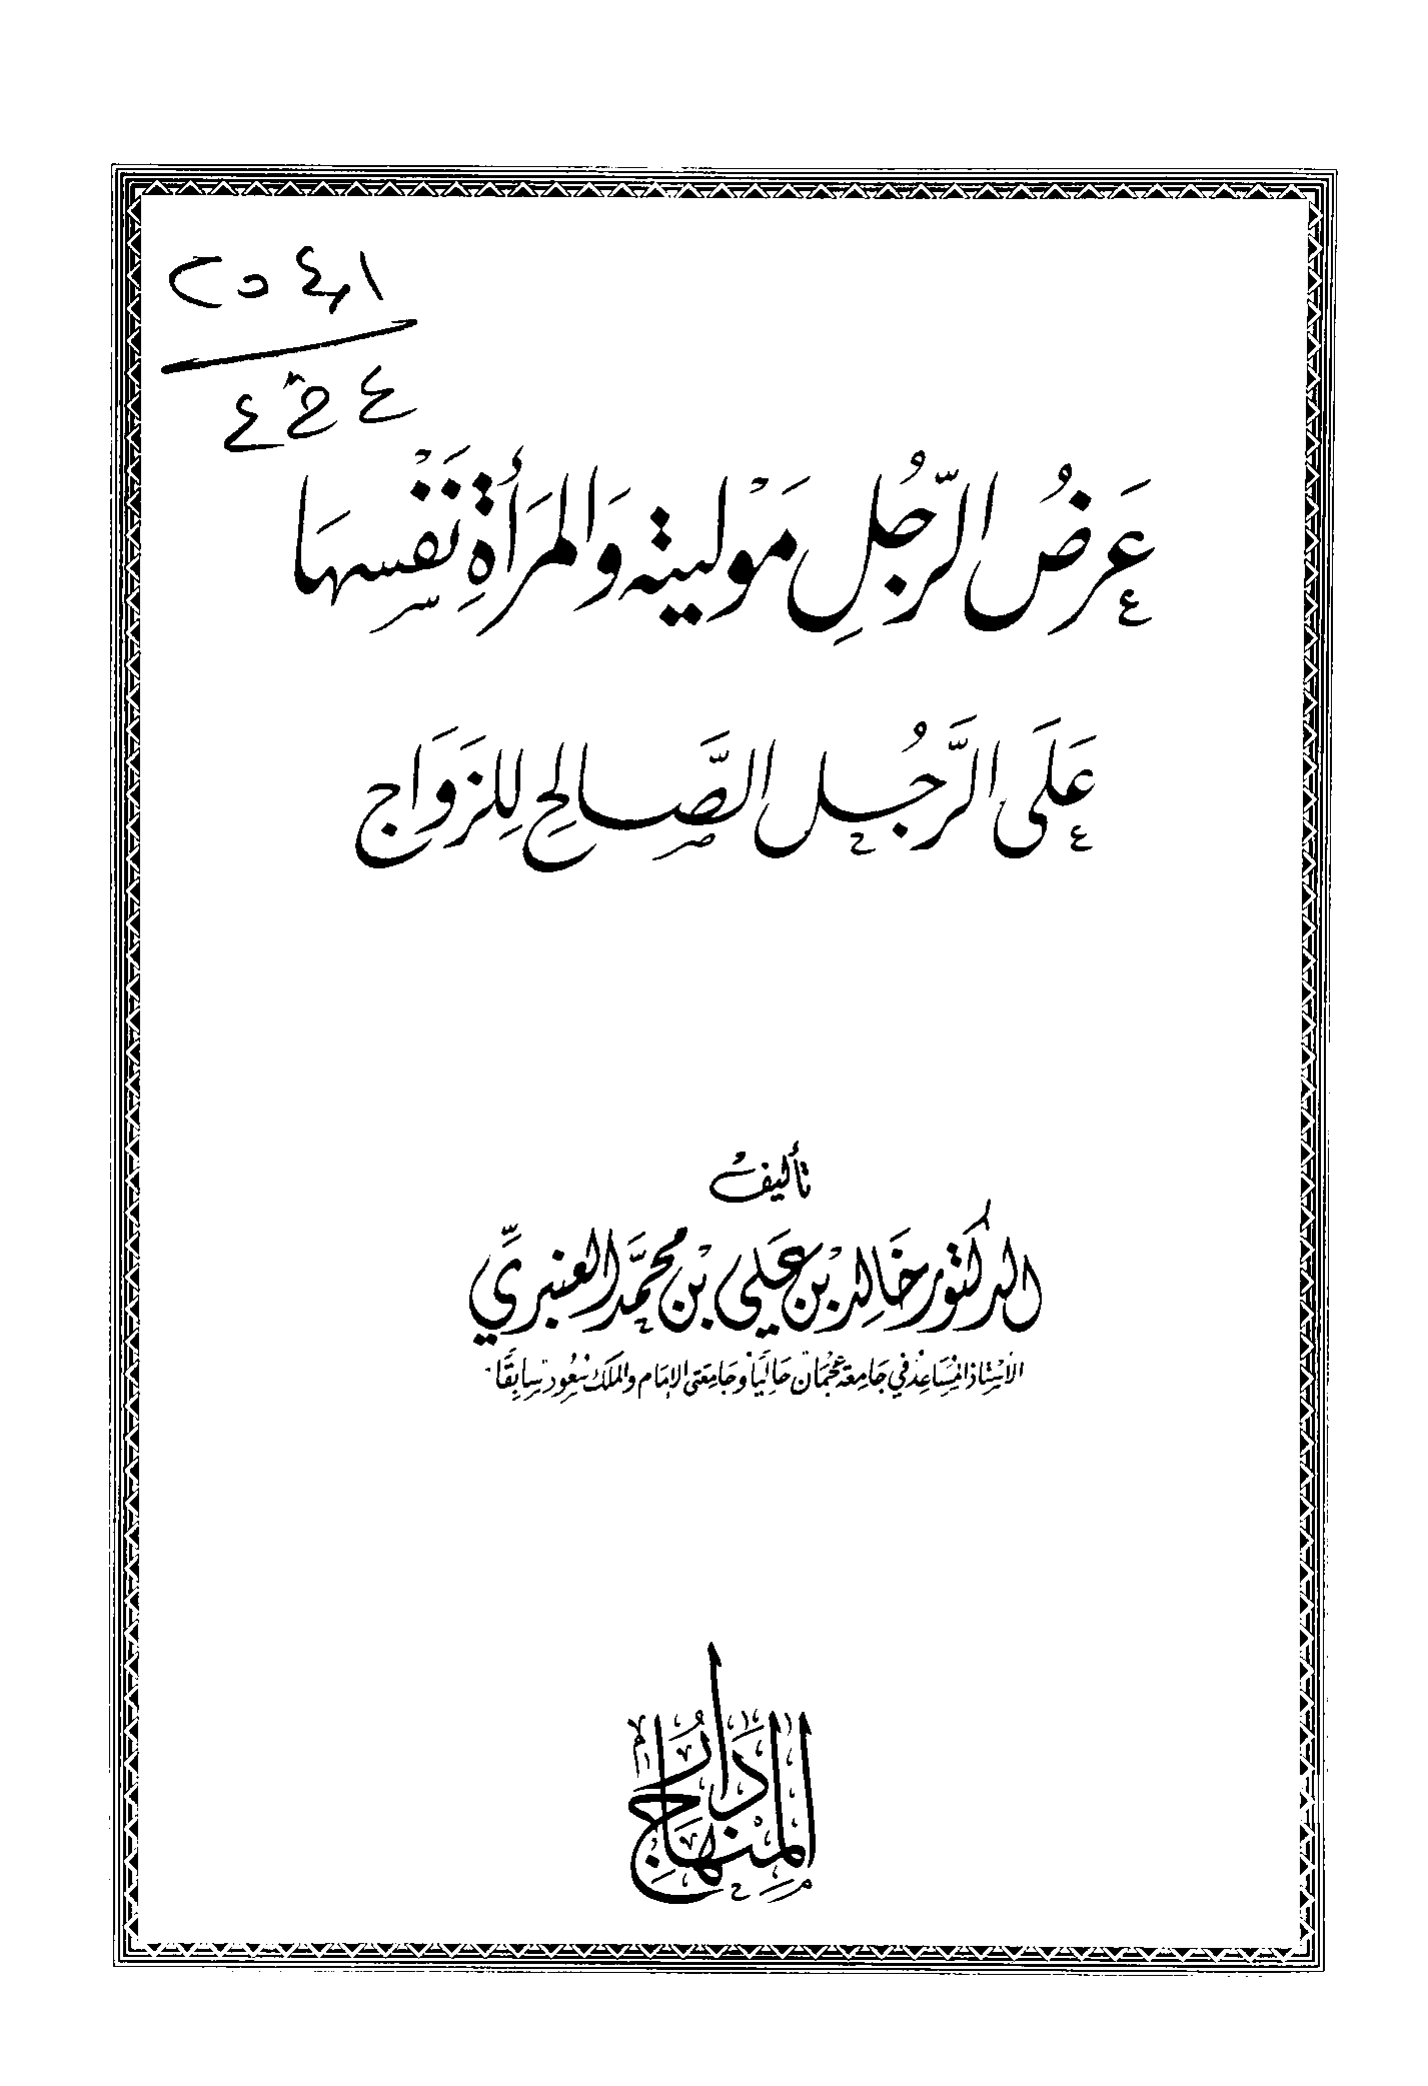 عَرضُ الرّجُلِ مَوْليته وَالمَرأَةِ نَفْسِهَا
عَلَى الرَّجُل الصَّالِح لِلزَوَاج
تأليف
الدكتور خَالِد بْن عَلي بْن محَمَّد العنبريِّ
الأسْتاذ المسَاعِدُ في جَامِعة عجْمَان حَاليَاً وَجَامِعَتي الإمَام والملك سُعُود سَابِقًا
دَارُ المِنْهَاج